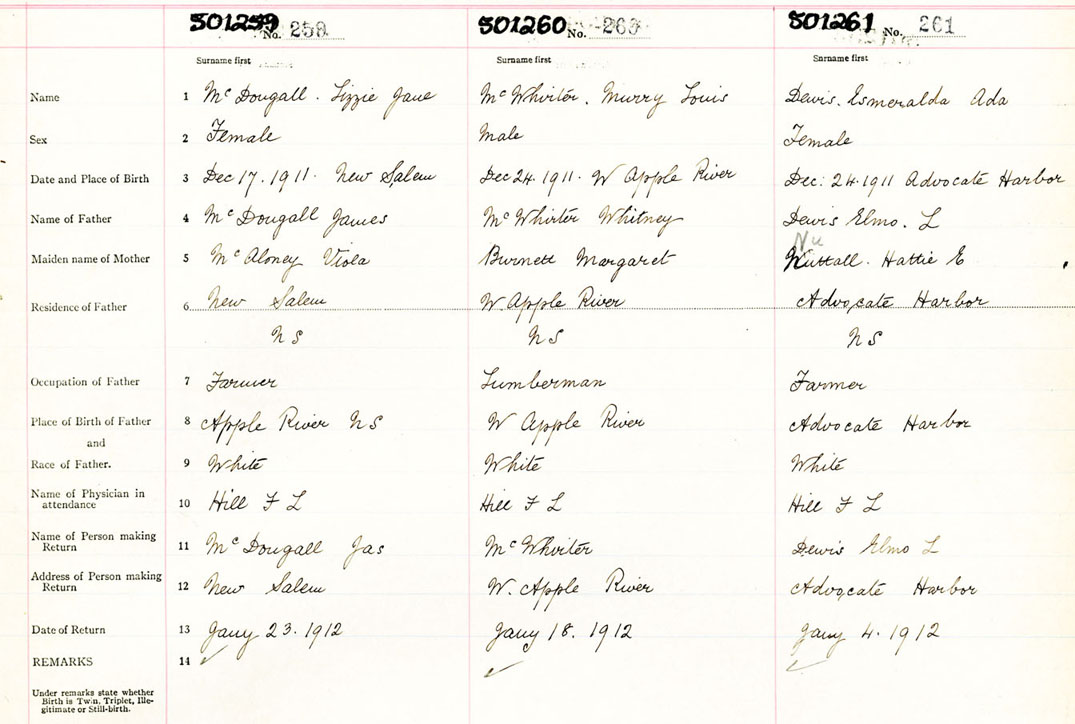 501259 No. 259 501260 No. 260 501261 No. 261
Surname first Surname first Surname first
Name 1 McDougall. Lizzie Jane McWhirter. Murry Louis Dewis. Esmeralda Ada
Sex 2 Female Male Female
Date and Place of Birth 3 Dec 17. 1911. New Salem Dec 24. 1911. W Apple River Dec: 24. 1911 Advocate Harbor
Name of Father 4 McDougall James McWhirter Whitney Dewis Elmo. L
Nu
Maiden name of Mother 5 McAloney Viola Burnett Margaret Nuttall. Hattie E
Residence of Father 6 New Salem W. Apple River Advocate Harbor
N S N S N S
Occupation of Father 7 Farmer Lumberman Farmer
Place of Birth of Father 8 Apple River N S W Apple River Advocate Harbor
and
Race of Father. 9 White White White
Name of Physician in
attendance 10 Hill F L Hill F L Hill F L
Name of Person making
Return 11 McDougall Jas McWhirter Dewis Elmo L
Address of Person making
Return 12 New Salem W. Apple River Advocate Harbor
Date of Return 13 Jany 23. 1912 Jany 18. 1912 Jany 4. 1912
REMARKS 14
Under remarks state whether
Birth is Twin, Triplet, Ille-
gitimate or Still-birth.